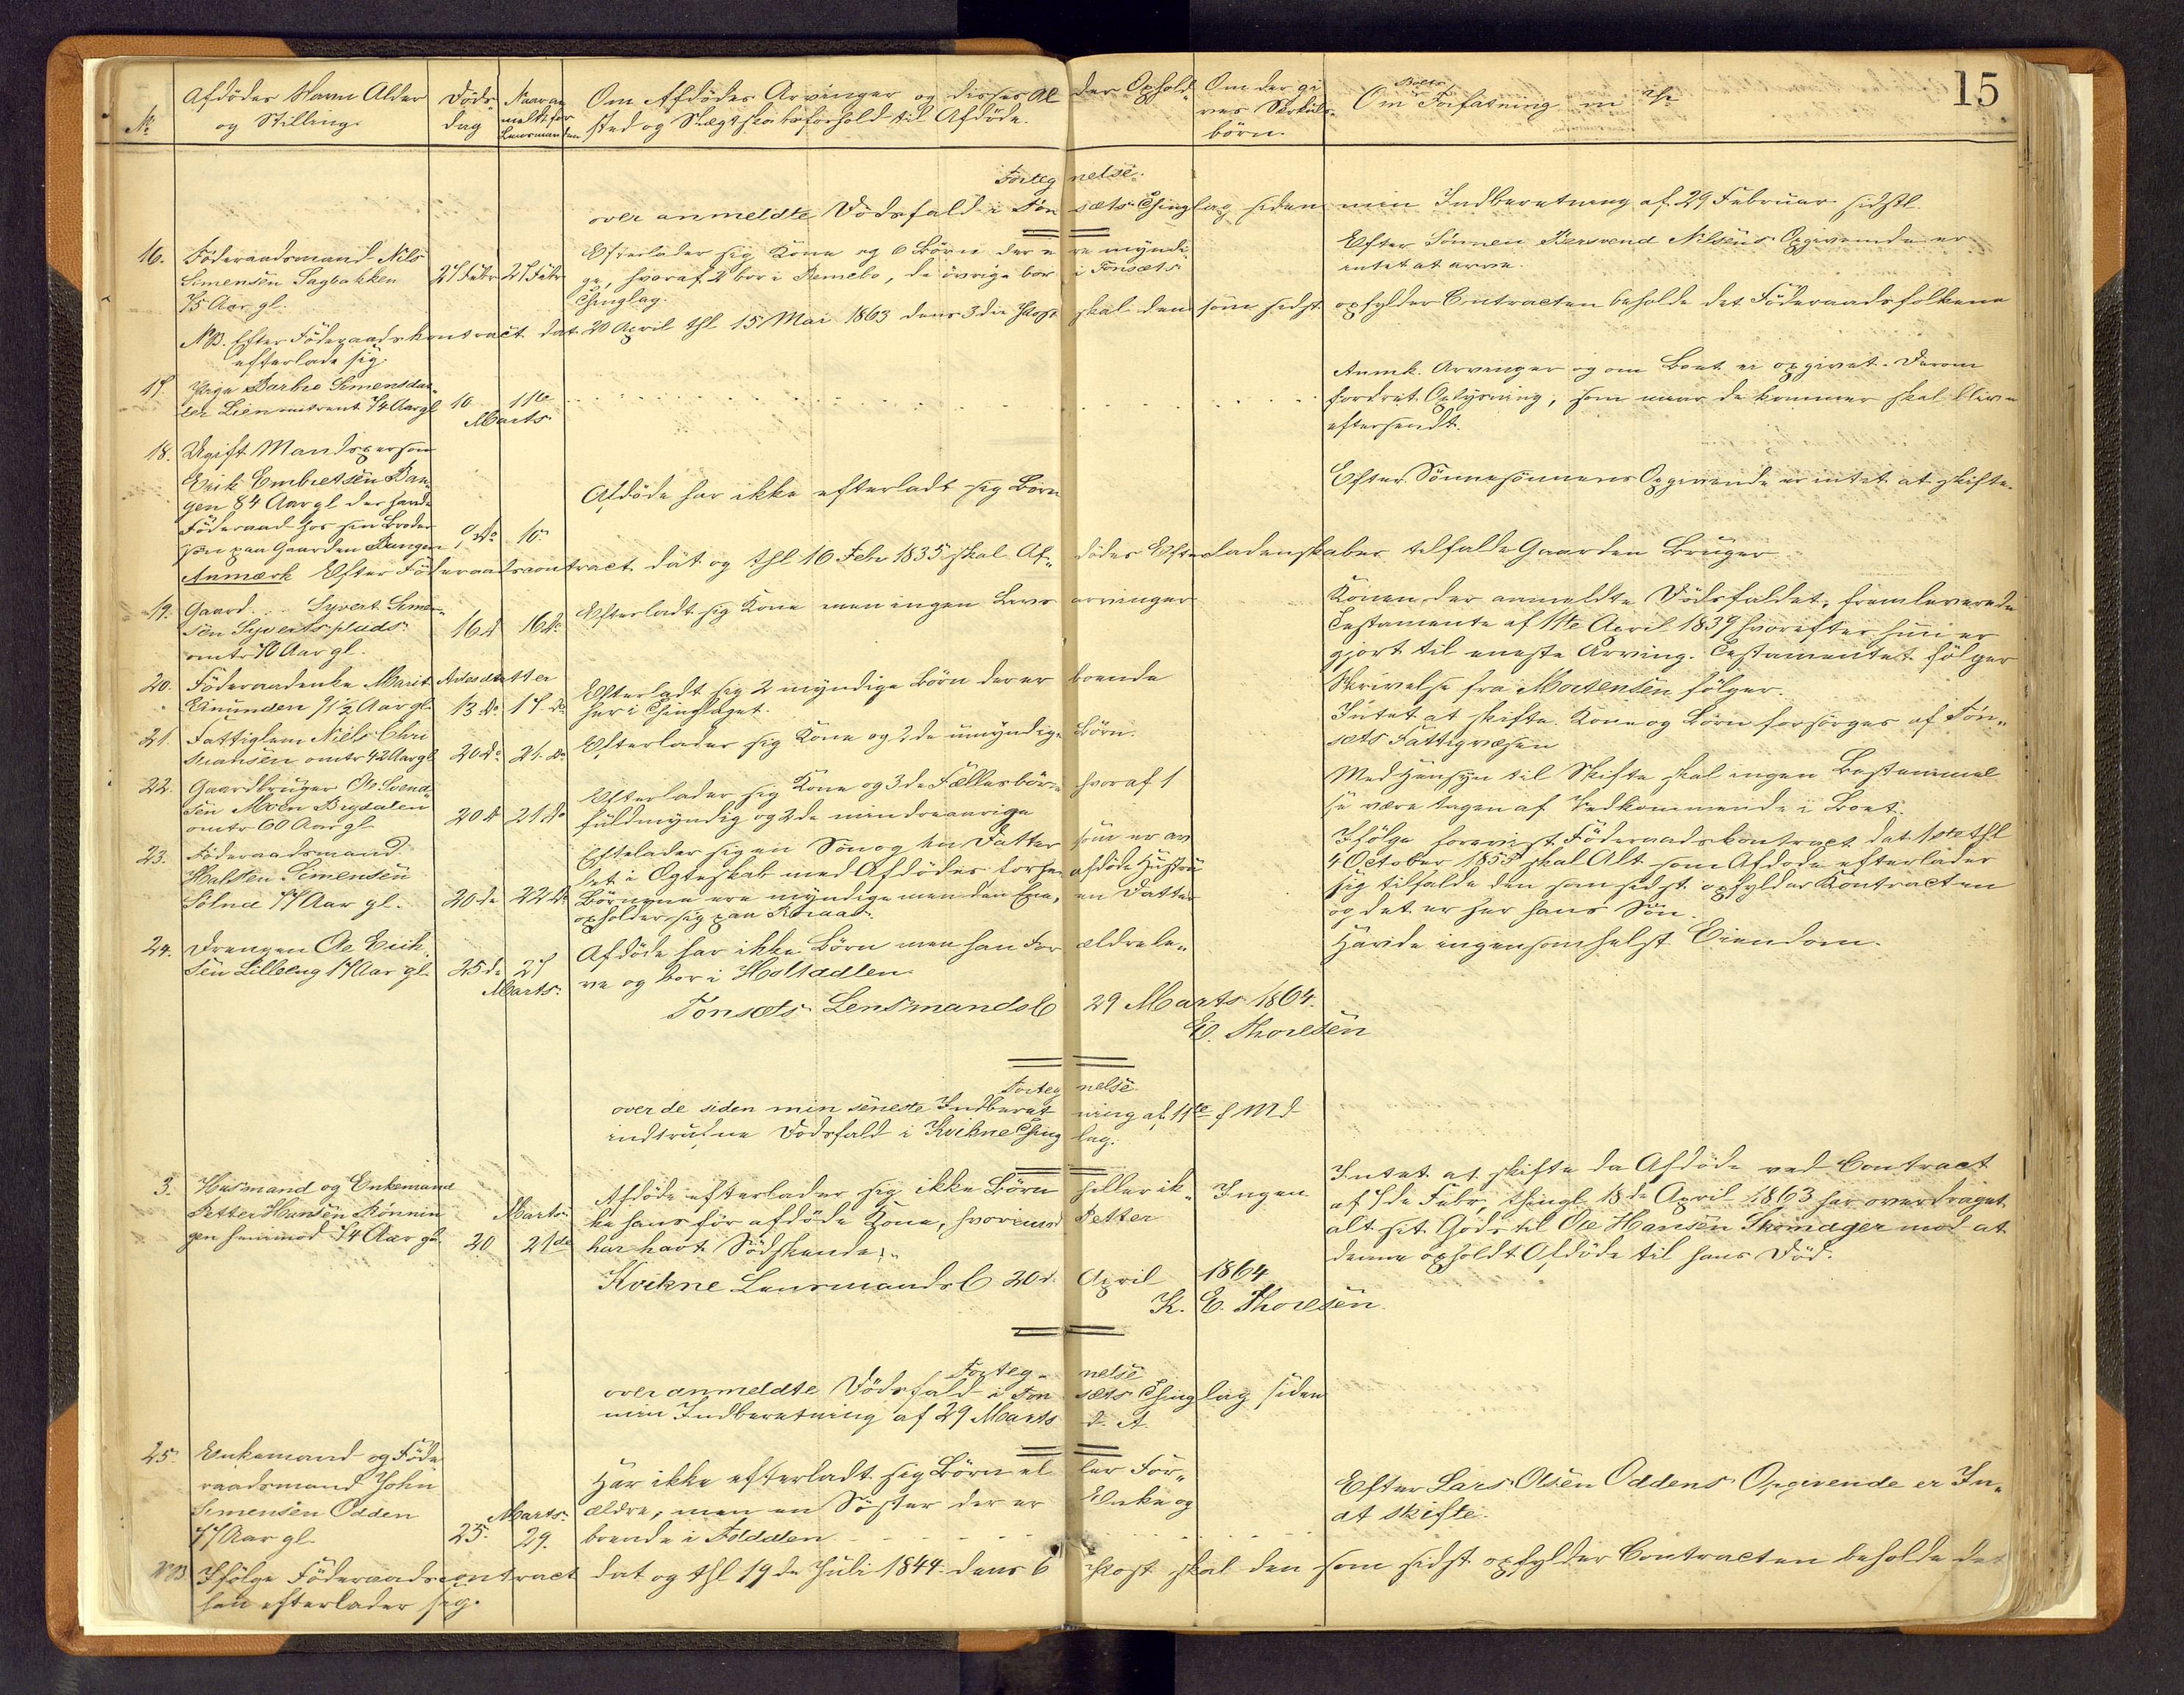 15
No
Afdödes Navn Alder og Stilling.
Döds- dag
Naar an meldt for Lensmanden
Om Afdödes Arvinger og disses Alder Ophold- sted og Slægtskabsforhold til Afdöde.
Om der gi ves Særkuls- börn.
Om Boets Forfatning m
Fortegnelse.
over anmeldte Dödsfald i Tönsæts Thinglag siden min Indberetning af 29 Februar sidstl
16. Föderaadsmand Nils
Simensen Sagbakken 27 Febr 27 Febr
75 Aar gl.
Efterlader sig Kone og 6 Börn der ere myndi
ge, hvoraf 2 bor i Remebo, de övrige bor i Tönsæts
Thinglag.
Efter Sönnen Bersvend Nilsens Opgivende er
intet at arve
NB. Efter Föderaadskontract dat. 20 April thl 15 Mai 1863 dens 3die Post skal den som sidst opfylder Contracten beholde det Föderaadsfolkene
efterlade sig.
17. Pige Barbro Simensdat-
ter Lien omtrent 74 Aar gl 10 11te
Marts
Anmk. Arvinger og om Boet ei opgivet. Derom
fordret Oplysning, som naar de kommer skal blive
eftersendt.
18. Ugift Mandsperson
Erik Embretsen Ban-
gen 84 Aar gl der havde
Föderaad hos sin Broder
sön paa Gaarden Bangen 9 do 10
Afdöde har ikke efterladt sig Börn
Efter Sönnesönnens Opgivende er intet at skifte.
Anmærk Efter Föderaadscontract dat og thl 16 Febr 1835 skal Af- dödes Efterladenskaber tilfalde Gaarden Bruger
19. Gaard... Syvert Simen-
sen Syvertspluds 16 d 16 do
omtr 70 Aar gl.
Efterladt sig Kone men ingen Livs arvinger
Konen der anmeldte Dödsfaldet, fremleverede
Testamente af 11te April 1839 hvorefter hun er
gjort til eneste Arving. Testamentet fölger
20. Föderaadenke Marit Arnesdatter
Enunden 71½ Aar gl 13 do 17 do
Efterladt sig 2 myndige Börn der er boende
her i Thinglaget.
Skrivelse fra Mortensen fölger.
21. Fattiglem Niels Chri
stiansen omtr 42 Aar gl 20 do 21. do
Efterlader sig Kone og 2de umyndige Börn.
Intet at skifte. Kone og Börn forsörges af Tön-
sæts Fattigvæsen
22. Gaardbruger Ole Svend-
sen Moen Brydalen
omtr 60 Aar gl 20 do 21 do
Efterlader sig Kone og 3de Fællesbörn hvoraf 1
fuldmyndig og 2de mindreaarige
Med Hensyn til Skifte skal ingen Bestemmel
se være tagen af Vedkommende i Boet.
23. Föderaadsmand
Halsten Simensen
Sölna 77 Aar gl. 20 de 22 do
Efterlader sig en Sön og en Datter som er av
let i Egteskab med Afdödes forhen afdöde Hustru
Börnene ere myndige men den Ene, en Datter
opholder sig paa Röraas.
Ifölge forevist Föderaadskontract dat 1ste thl
4 October 1855 skal Alt som Afdöde efterlader
sig tilfalde den som sidst opfylder Kontracten
og det er her hans Sön.
24. Drengen Ole Erik-
sen Lilleeng 17 Aar gl. 25 de 27
Marts
Afdöde har ikke Börn men han For ældre le-
ve og bor i Holtaalen
Havde ingensomhelst Eiendom.
Tönsæts Lensmandsb 29 Marts 1864.
E. Thoresen
Fortegnelse
over de siden min seneste Indberet ning af 11te f Md
indtrufne Dödsfald i Kvikne Thinglag.
3. Husmand og Enkemand
Petter Hansen Rönnin Marts
gen henimod 74 Aar gl. 20 21de
Afdöde efterlader sig ikke Börn heller ik-
ke hans för afdöde Kone, hvorimod Petter
har havt Södskende.
Ingen
Intet at skifte da Afdöde ved Contract
af 7de Febr, thingl 18de April 1863 har overdraget
alt sit Gods til Ole Hansen Skomager mod at
denne opholdt Afdöde til hans Död.
Kvikne Lensmandsb 20d April 1864
K. E. Thoresen
Fortegnelse
over anmeldte Dödsfald i Tönsæts Thinglag siden
min Indberetning af 29 Marts d. A
25. Enkemand og Föde
raadsmand John
Simensen Odden Marts
77 Aar gl. 25. 29.
Har ikke efterladt sig Börn el ler For-
ældre, men en Söster der er Enke og
boende i Foldalen
Efter Lars Olsen Oddens Opgivende er In-
at skifte.
NB Ifölge Föderaadscontract dat og thl 19de Juli 1844. dens 6 Post skal den som sidst opfylder Contracten beholde det
han efterlader sig.